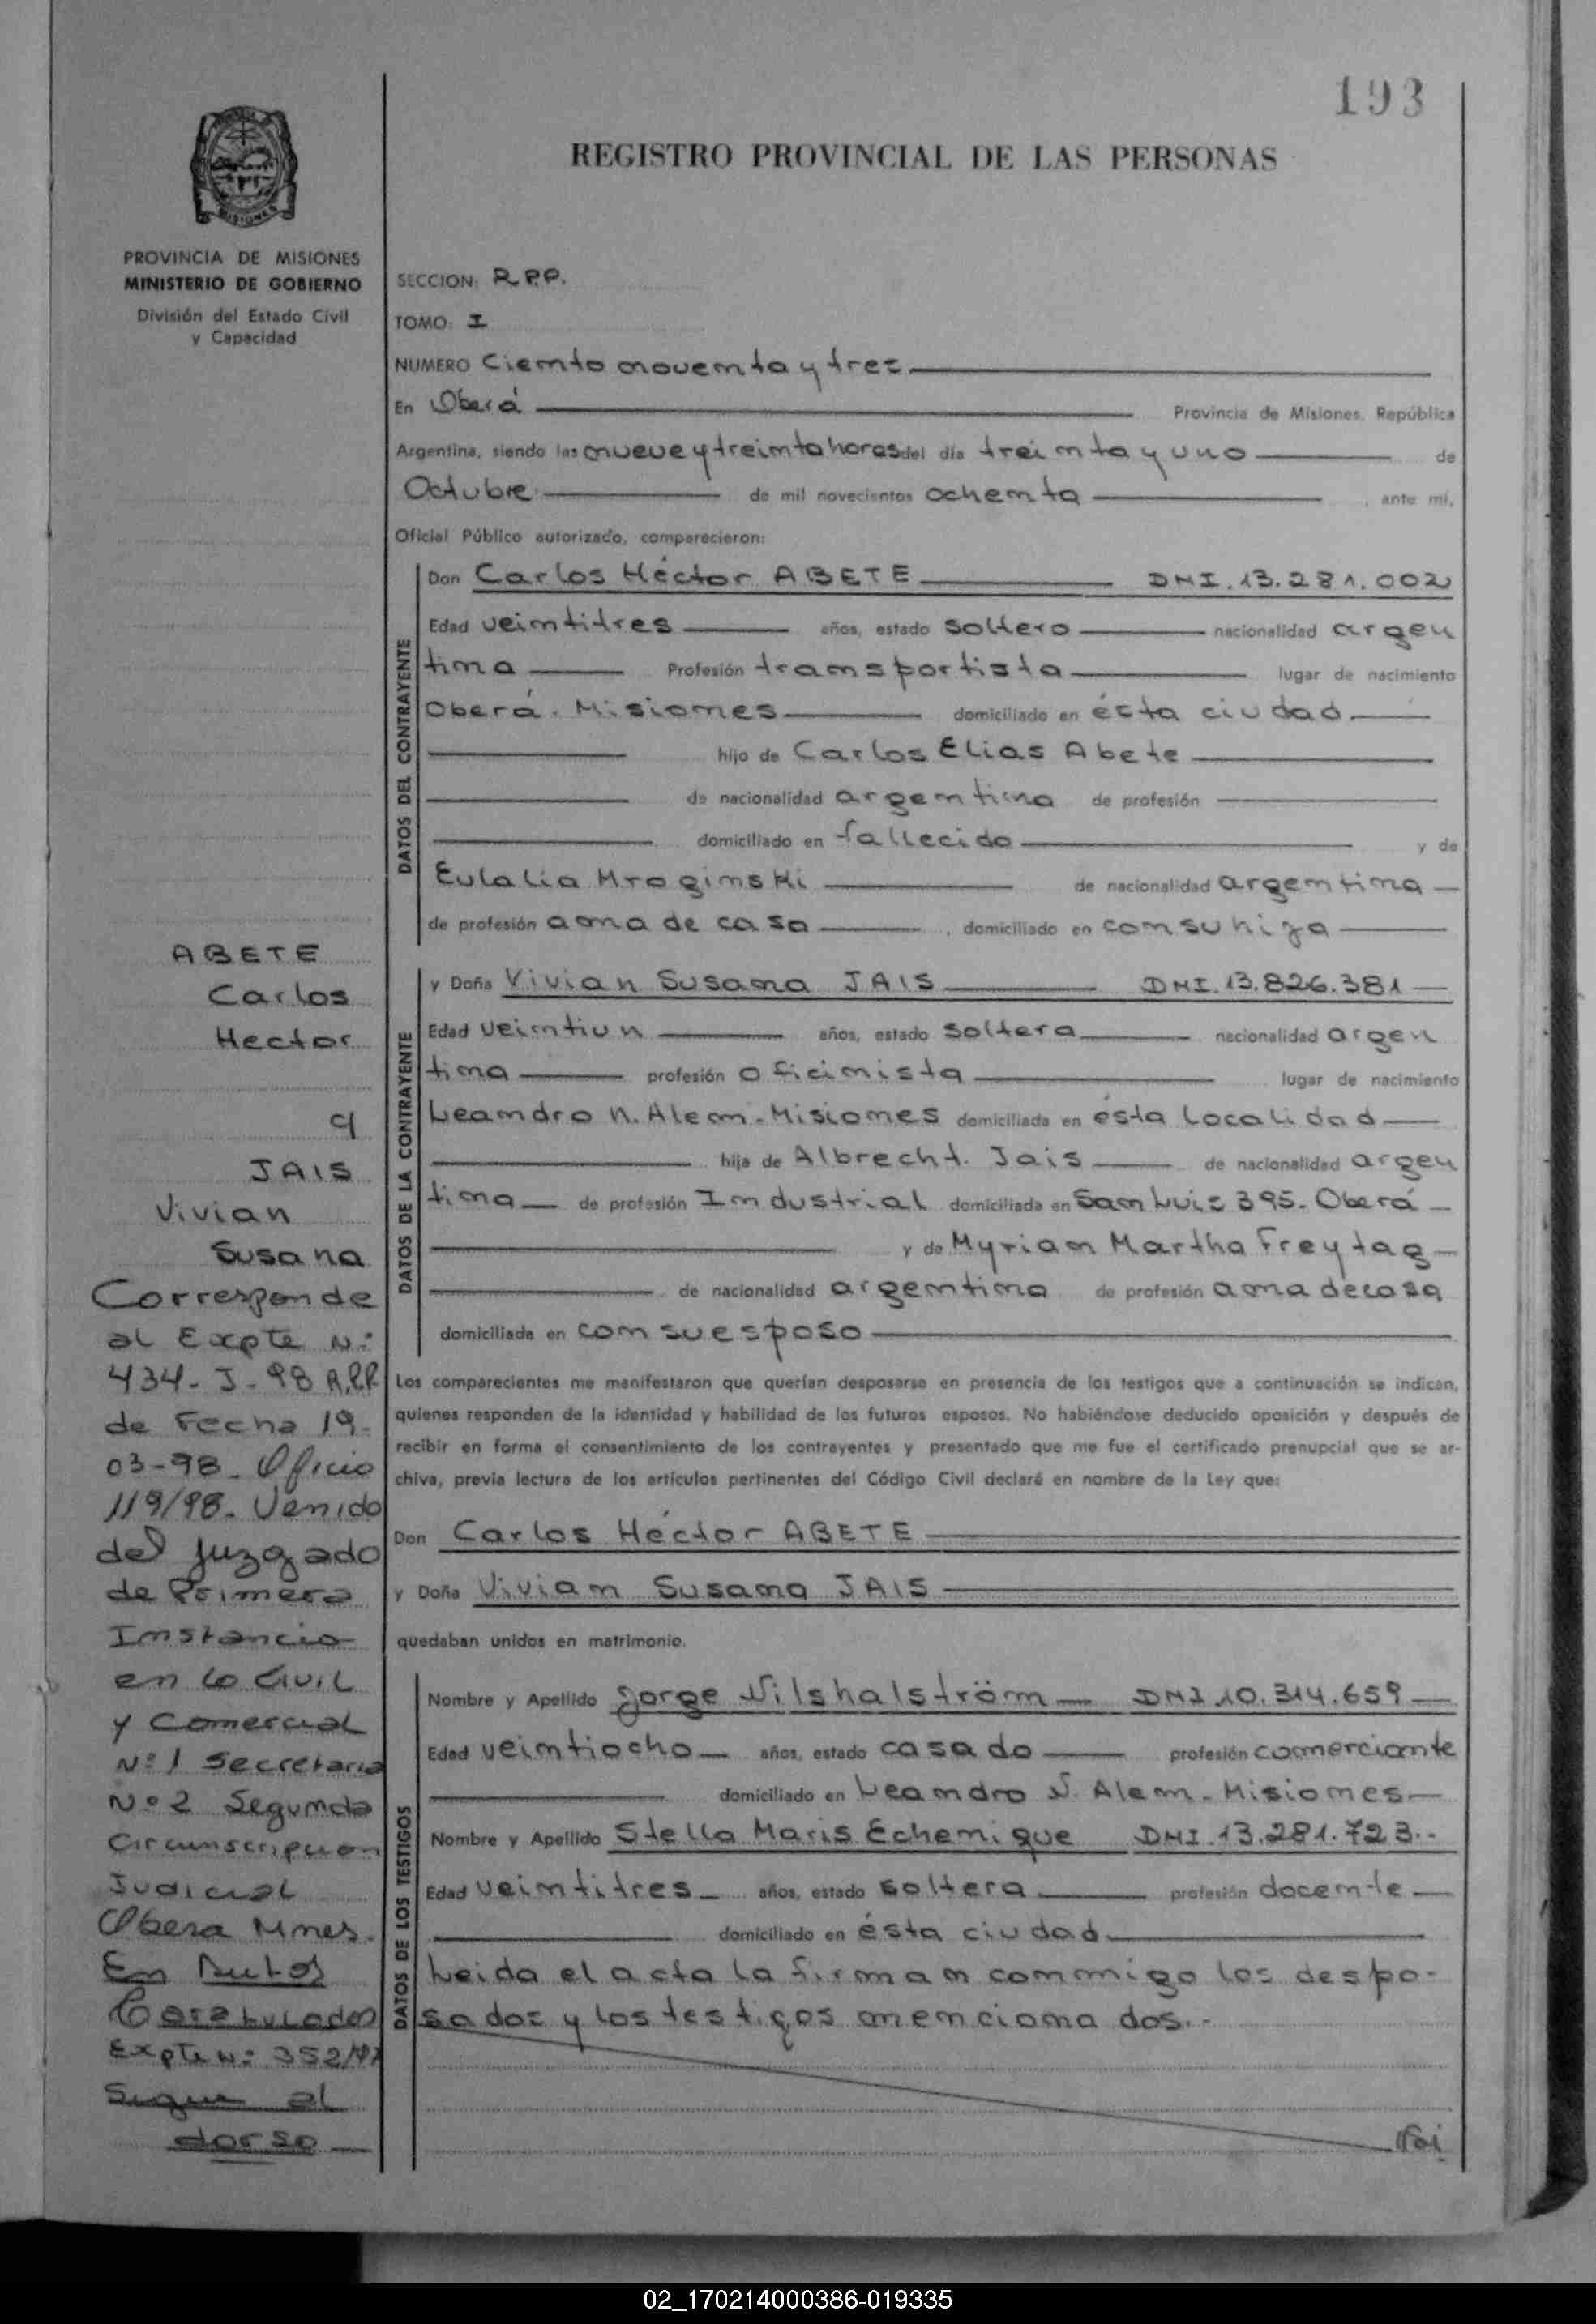 193
REGISTRO PROVINCIAL DE LAS PERSONAS
MISIONES
PROVINCIA DE MISIONES
MINISTERIO DE GOBIERNO
División del Estado Civil
y Capacidad
SECCION: R.P.P.
TOMO: I
NUMERO Ciento noventa y tres
En Oberá Provincia de Misiones, República
Argentina, siendo las nueve y treinta horas del día treinta y uno de
Octubre de mil novecientos ochenta, ante mí,
Oficial Público autorizado, comparecieron:
DATOS DEL CONTRAYENTE
Don Carlos Héctor ABETE DNI.13.281.002
Edad veintitres años, estado soltero nacionalidad argen
tina Profesión transportista lugar de nacimiento
Oberá. Misiones domiciliado en ésta ciudad
hijo de Carlos Elias Abete
de nacionalidad argentina de profesión
domiciliado en fallecido y de
Eulalia Mroginski de nacionalidad argentina
de profesión ama de casa, domiciliado en con su hija
DATOS DE LA CONTRAYENTE
y Doña Vivian Susana JAIS DNI.13.826.381
Edad veintiun años, estado soltera nacionalidad argen
tina profesión oficinista lugar de nacimiento
Leandro N. Alem - Misiones domiciliada en ésta localidad
hija de Albrecht. Jais de nacionalidad argen
tina de profesión Industrial domiciliada en San Luis 395. Oberá
y de Myriam Martha Freytag
de nacionalidad argentina de profesión ama de casa
domiciliada en con su esposo
Los comparecientes me manifestaron que querían desposarse en presencia de los testigos que a continuación se indican,
quienes responden de la identidad y habilidad de los futuros esposos. No habiéndose deducido oposición y después de
recibir en forma el consentimiento de los contrayentes y presentado que me fue el certificado prenupcial que se ar-
chiva, previa lectura de los artículos pertinentes del Código Civil declaré en nombre de la Ley que:
Don Carlos Héctor ABETE
y Doña Vivian Susana JAIS
quedaban unidos en matrimonio.
DATOS DE LOS TESTIGOS
Nombre y Apellido Jorge Nilshalström DNI 10.314.659
Edad veintiocho años, estado casado profesión comerciante
domiciliado en Leandro N. Alem - Misiones
Nombre y Apellido Stella Maris Echenique DNI.13.281.723.-
Edad veintitres años, estado soltera profesión docente
domiciliado en ésta ciudad
Leida el acta la firman conmigo los despo-
sados y los testigos mencionados.-
ABETE
Carlos
Hector
y
JAIS
Vivian
Susana
Corresponde
al Expte N:
434-J-98 R.P.P
de Fecha 19-
03-98. Oficio
119/98. Venido
del Juzgado
de Primera
Instancia
en lo Civil
y Comercial
Nº 1 Secretaria
Nº 2 Segunda
Circunscripcion
Judicial
Obera Mnes.
En Autos
Caratulados
Expte Nº 352/97
Sigue al
dorso
02_170214000386-019335